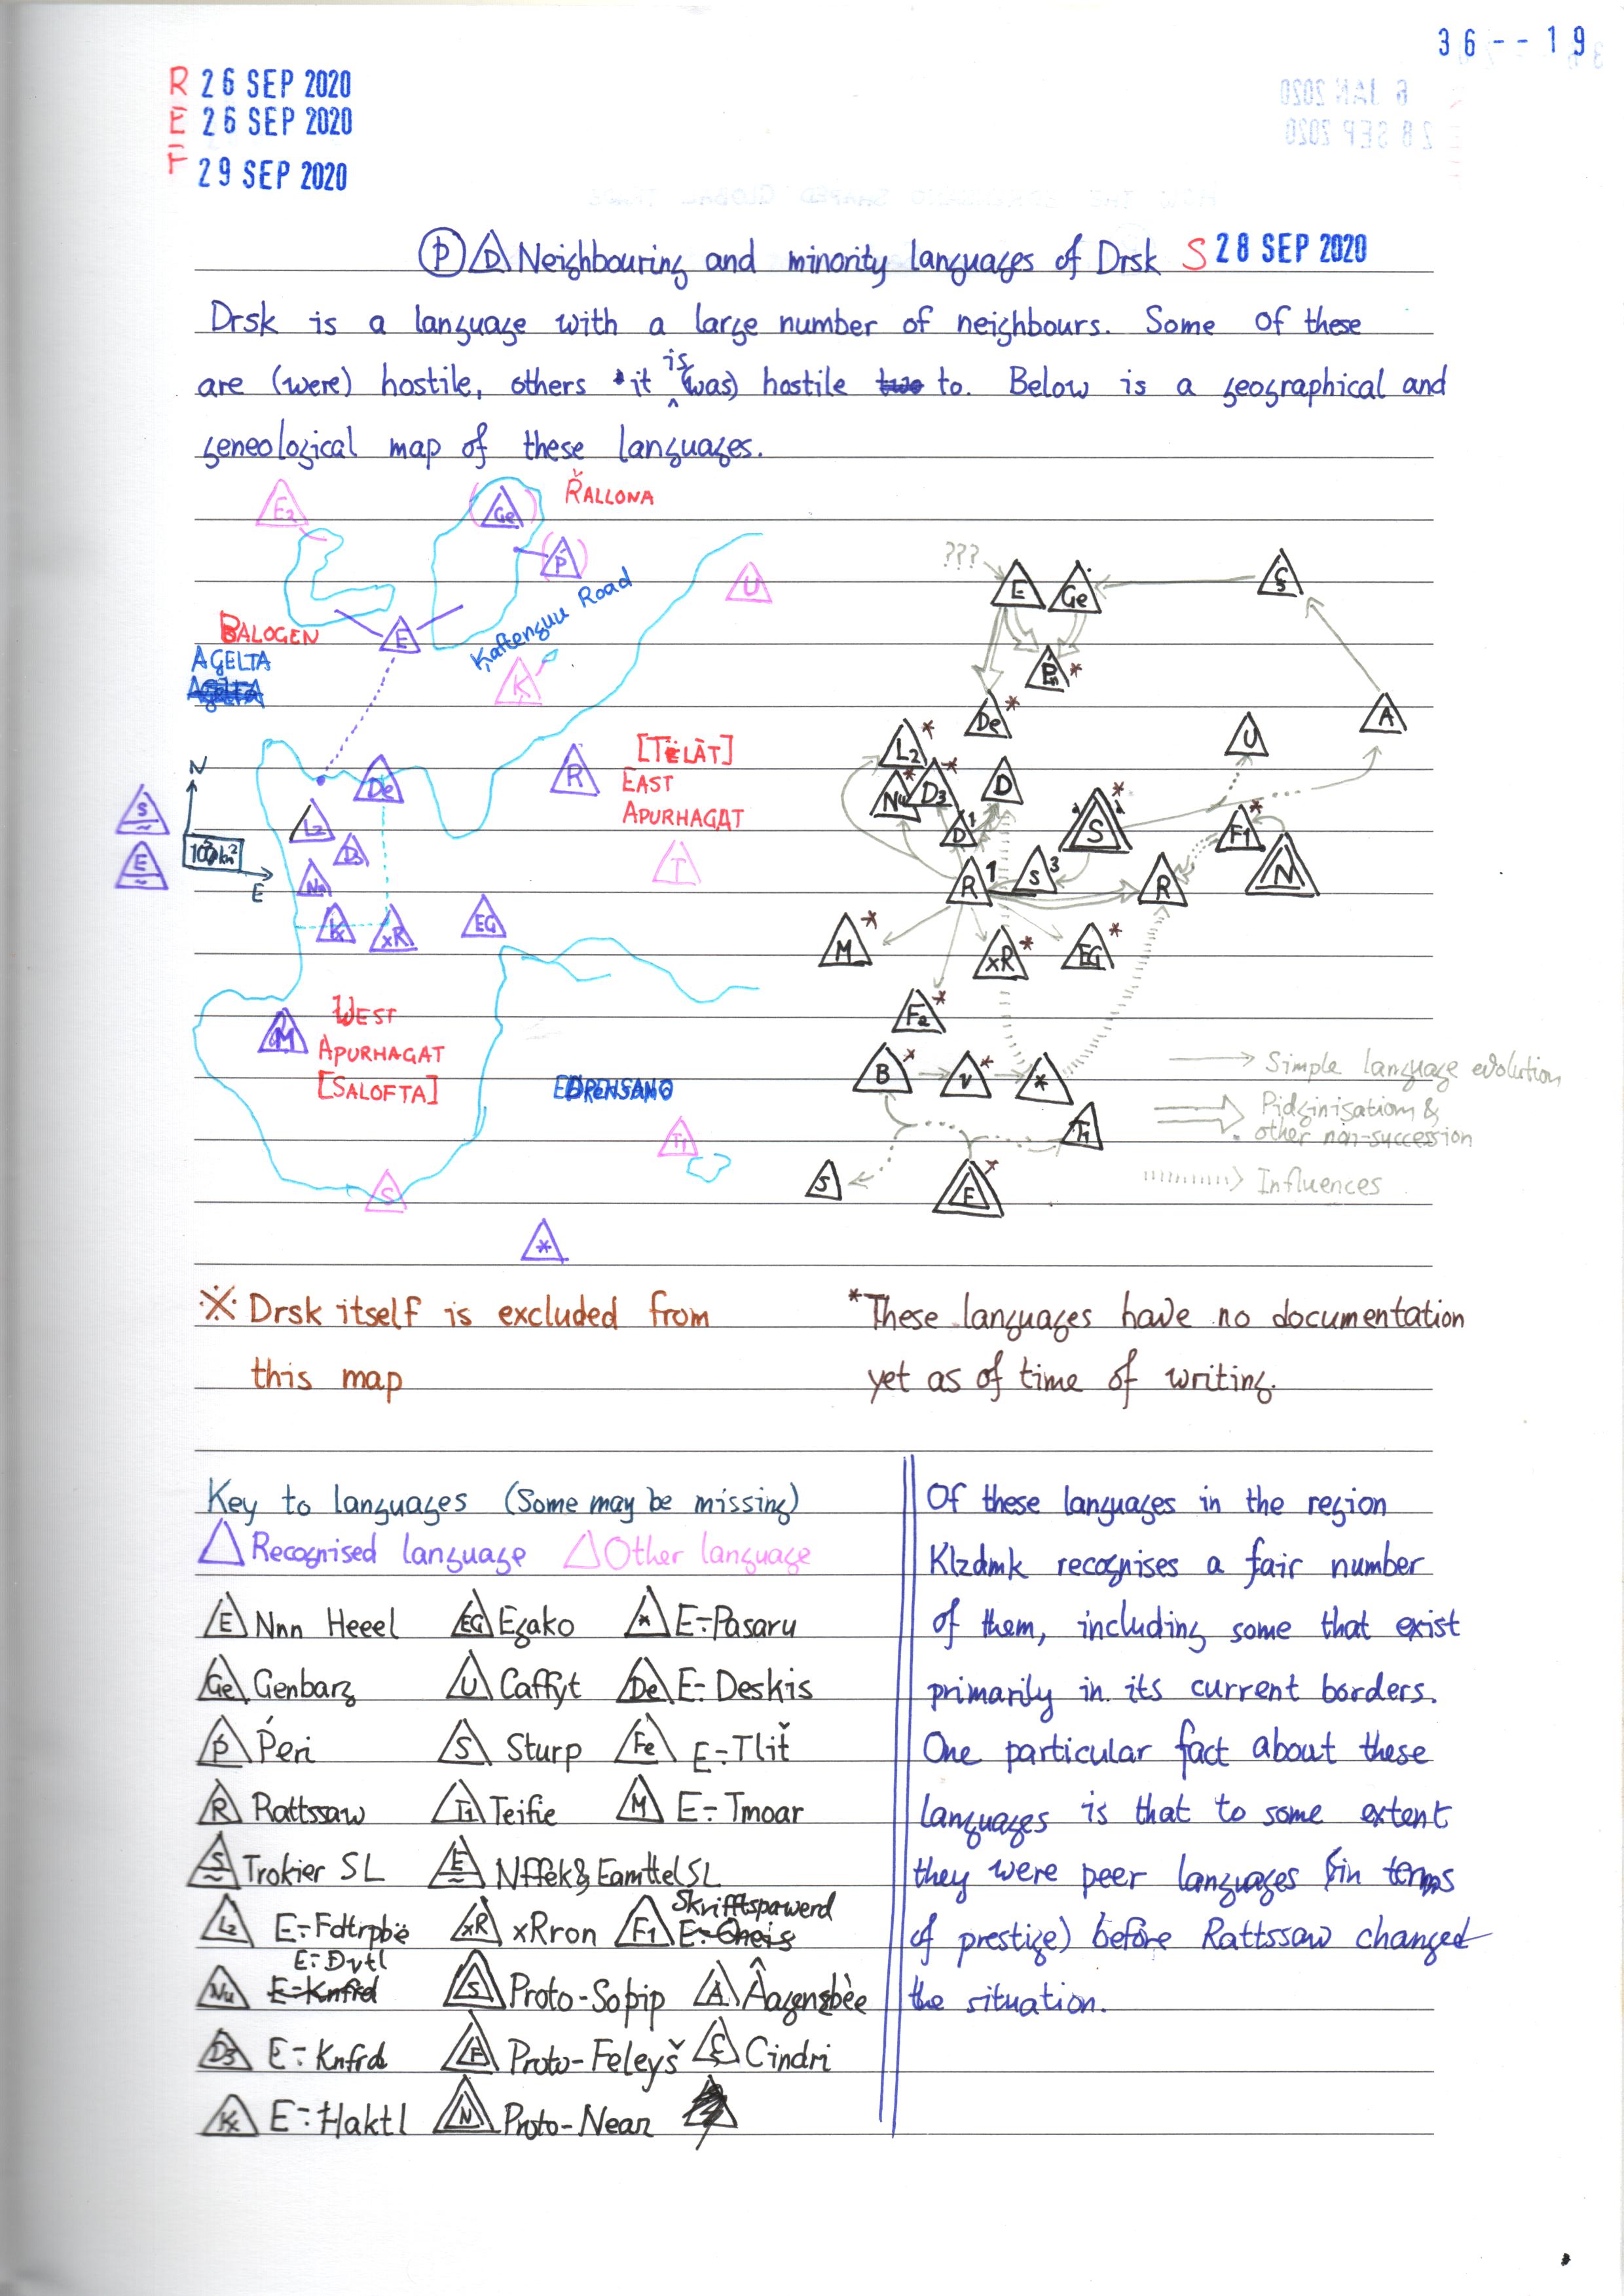 36--19
R 26 SEP 2020
E 26 SEP 2020
F 29 SEP 2020
P D Neighbouring and minority languages of Drsk S 28 SEP 2020
Drsk is a language with a large number of neighbours. Some of these
are (were) hostile, others it is (was) hostile to. Below is a geographical and
geneological map of these languages.
E2
Ge
ŘALLONA
Ṕ
U
BALOGEN
E
Kaftenguu Road
AGELTA
K
N
De
R
[TËLÀT]
EAST
APURHAGAT
S
L2
D3
T
E
E
Nu
K
xR
EG
M
WEST
APURHAGAT
[SALOFTA]
T1
S
*
???
E
Ge
Ç
P *
De *
A
L2 *
U
Nu *
D3 *
D
D 1
S *
F1 *
R 1
S 3
R
N
M *
xR *
EG *
F2 *
B *
V *
*
T1
S
F *
Simple language evolution
Pidginisation &
other non-succession
Influences
※ Drsk itself is excluded from
this map
*These languages have no documentation
yet as of time of writing.
Key to languages (Some may be missing)
Recognised language Other language
E Nnn Heeel EG Egako * E-Pasaru
Ge Genbarg U Caffyt De E-Deskis
Ṕ Ṕeri S Sturp Fe E-Tliť
R Rattssaw T1 Teifie M E-Tmoar
S Trokier SL E Nffek & Eamttel SL
L2 E-Fdtrpbë xR xRron F1 Skrifftspawerd
Nu E-Dvtl S Proto-Sopip A Âagensbèe
D3 E-Knfrd F Proto-Feleyš Ç Cindri
K E-Haktl N Proto-Near
Of these languages in the region
Klzdmk recognises a fair number
of them, including some that exist
primarily in its current borders.
One particular fact about these
languages is that to some extent
they were peer languages (in terms
of prestige) before Rattssaw changed
the situation.